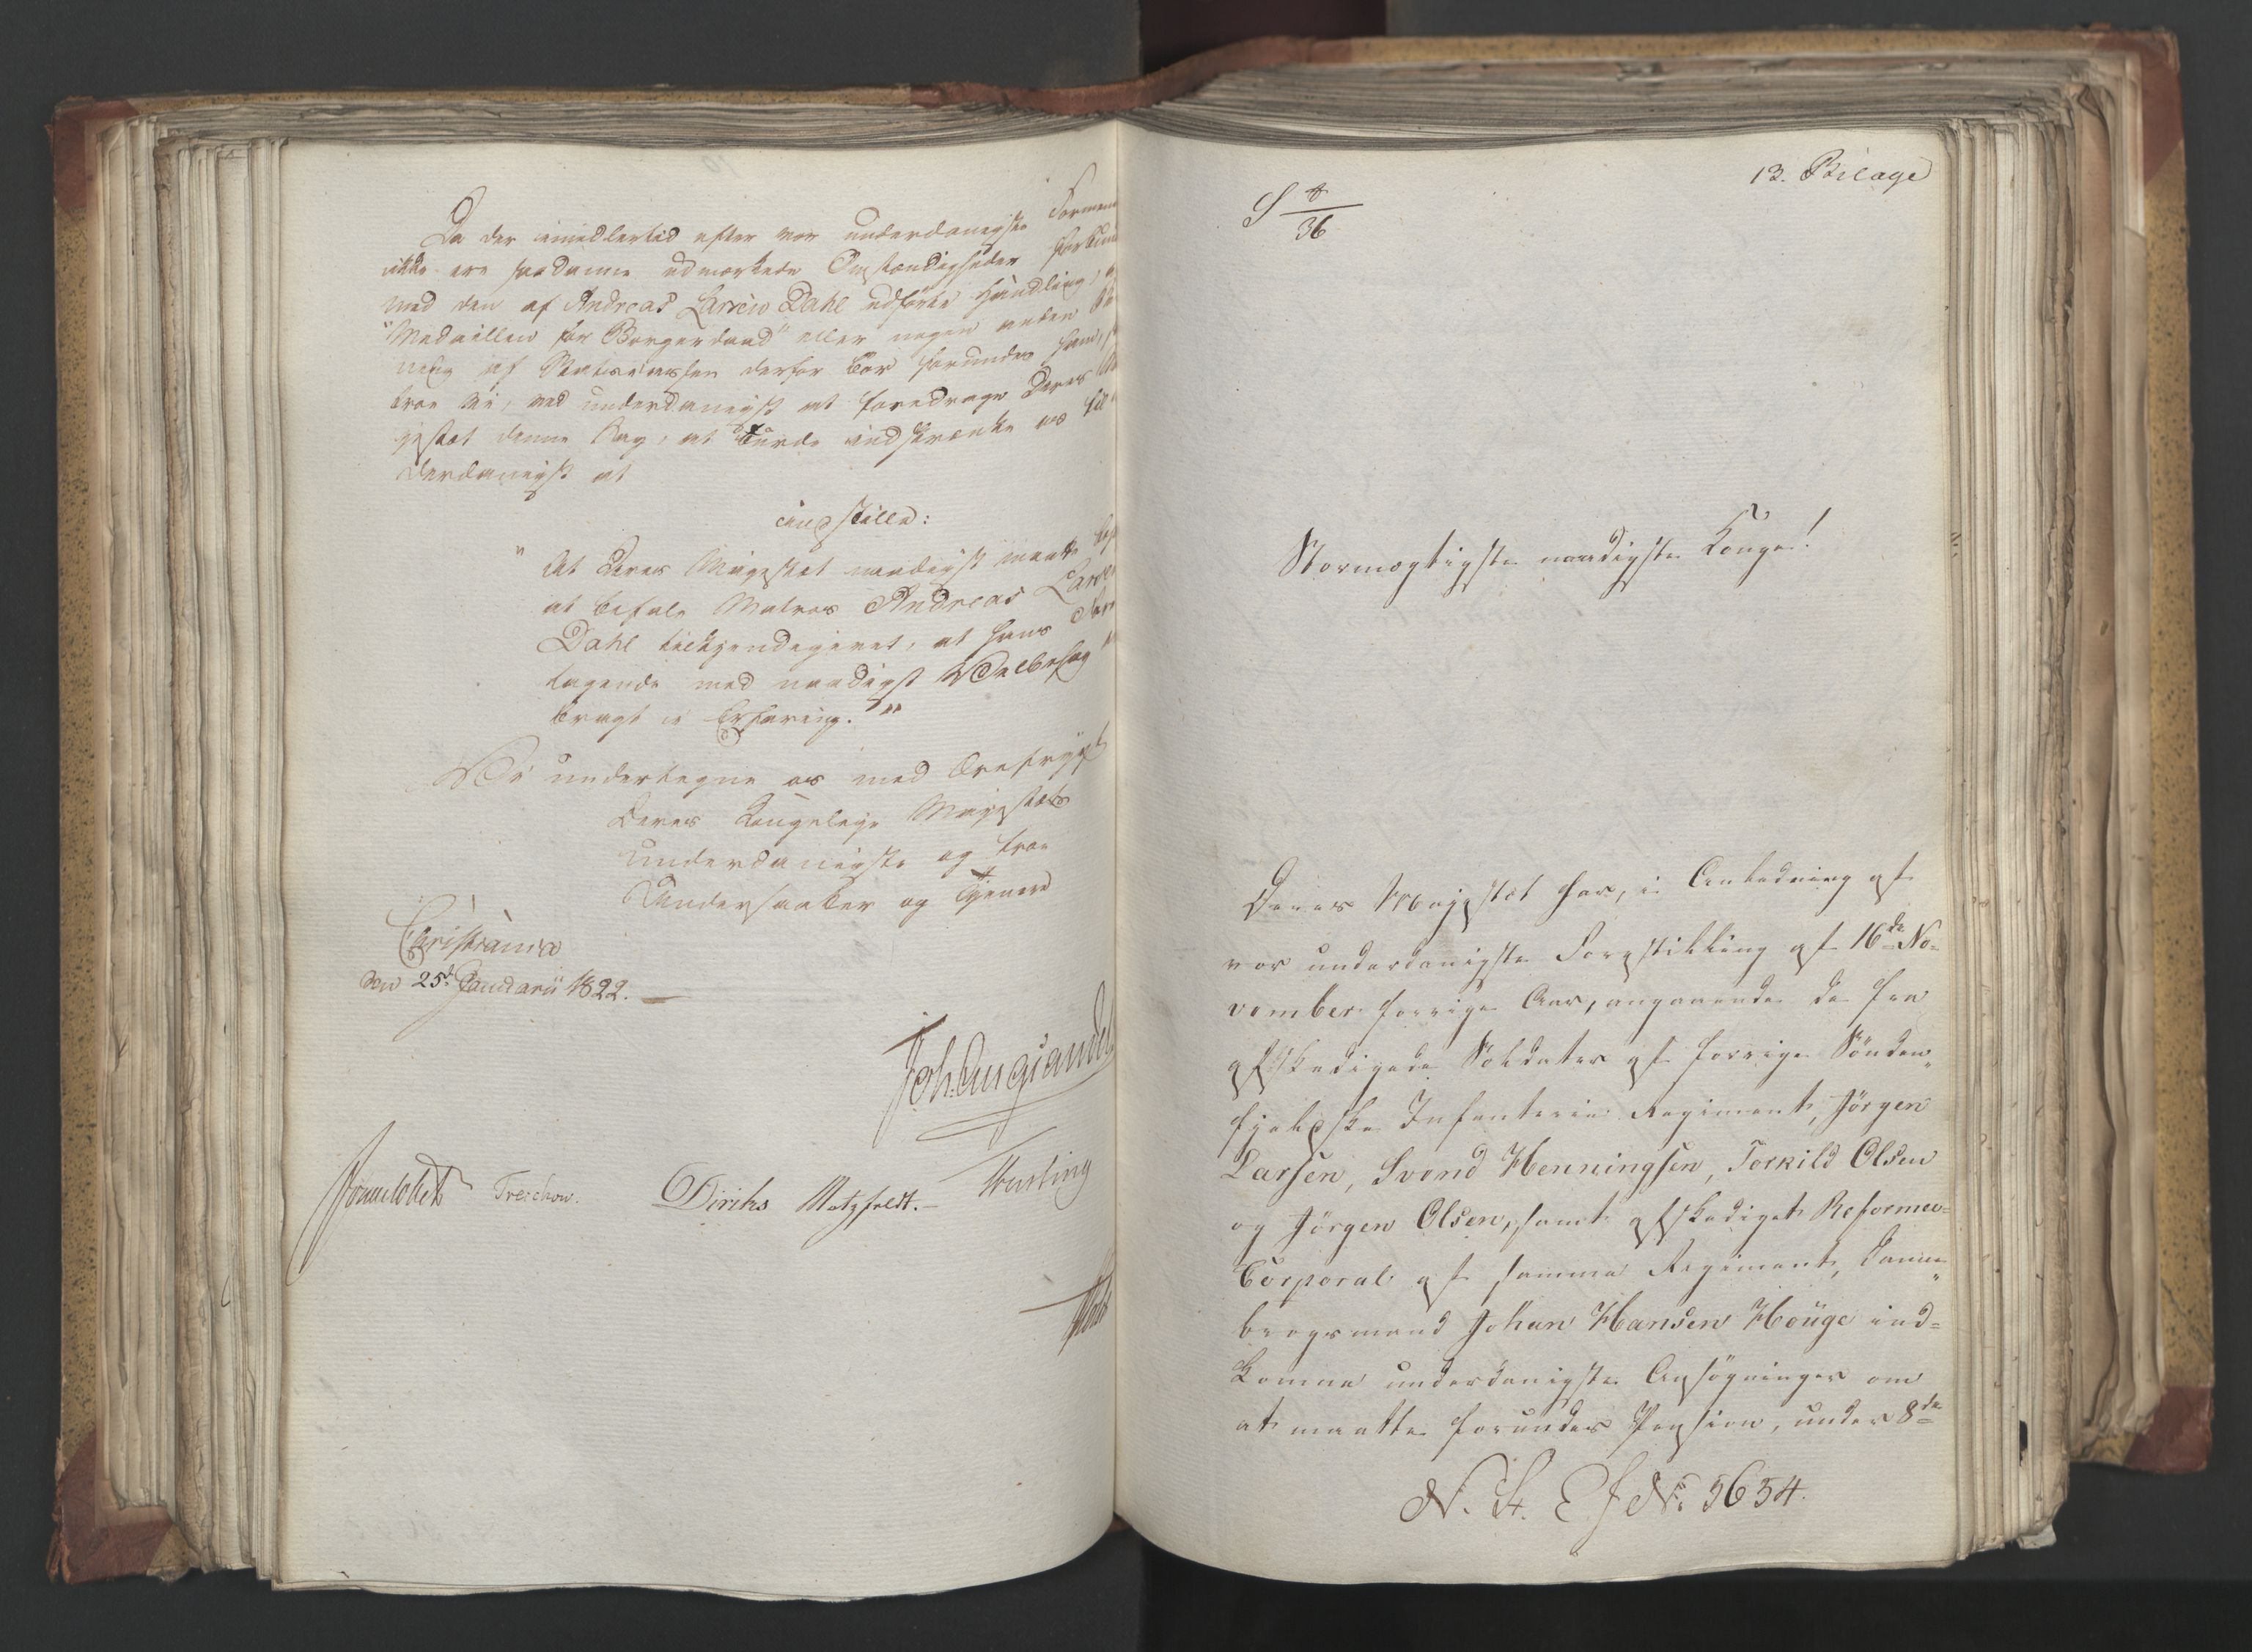 Da der imidlertid efter vor underdanigste Formeen
ikke ere saadanne udmærkede Omstændigheder forbund
med den af Andreas Larsen Dahl udførte Handling, at
"Medaillen for Borgerdaad" eller nogen anden
ning af Statscassen derfor bør forundes ham,
troe Vi, ved underdanigst at foredrage Deres Ma
jestæt denne Sag, at burde indskrænke os til
derdanigst at
indstille:
"At Deres Majestæt naadigst maatte
at befale Matros Andreas Larsen
Dahl tilkjendegivet, at hans
tagende med naadigst Velbehag
bragt i Erfaring."
Vi undertegne os med Ærefrygt
Deres Kongelige Majestæts
underdanigste og troe
Undersaatter og Tjenere
Christiania
den 25d Januarii 1822.
Joh. Aug. Sandels
Sommerhielm Treschow. Diriks Motzfeldt. Fasting
Holst
13. Bilage
S 8/36
Stormægtigste naadigste Konge!
Deres Majestæt har, i Anledning af
vor underdanigste Forestilling af 16de No=
vember forrige Aar, angaaende de fra
afskedigede Soldater af forrige Sønden„
fjeldske Infanterie Regiment, Jörgen
Larsen, Svend Henningsen, Torkild Olsen
og Jörgen Olsen, samt afskediget Reforme=
Corporal af samme Regiment, Danne„
brogsmand Johan Hansen Houge ind=
komne underdanigste Ansøgninger om
at maatte forundes Pension, under 8de
N. St. E. J No. 5654.